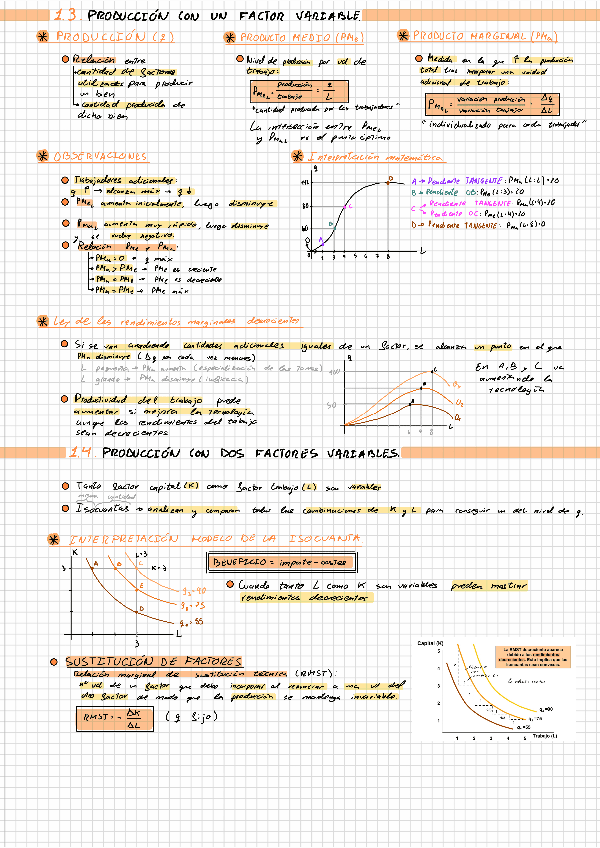 1.3. PRODUCCIÓN CON UN FACTOR VARIABLE.
PRODUCCIÓN (q)
Relación entre
cantidad de factores
utilizados para producir
un bien
cantidad producida de
dicho bien
PRODUCTO MEDIO (PMe)
Nivel de producción por ud de
trabajo:
PMeL = producción / trabajo = q / L
"cantidad producida por los trabajadores"
La intersección entre PMeL
y PMaL es el punto óptimo
PRODUCTO MARGINAL (PMa)
Medida en la que ↑ la producción
total tras incorporar una unidad
adicional de trabajo:
PMaL = variación producción / variación trabajo = Δq / ΔL
"individualizado para cada trabajador"
OBSERVACIONES
Trabajadores adicionales:
q ↑ → alcanza máx → q ↓
PMeL aumenta inicialmente, luego disminuye
PMaL aumenta muy rápido, luego disminuye
y se vuelve negativo.
Relación PMe y PMa:
PMa = 0 → q máx
PMa > PMe → PMe es creciente
PMa < PMe → PMe es decreciente
PMa = PMe → PMe máx
Interpretación matemática
q
A → Pendiente TANGENTE: PMa (L=1) = 10
B → Pendiente OB: PMe (L=3) = 20
C → Pendiente TANGENTE: PMa (L=4) = 20
Pendiente OC: PMe (L=4) = 20
D → Pendiente TANGENTE: PMa (L=8) = 0
L
Ley de los rendimientos marginales decrecientes
Si se van añadiendo cantidades adicionales iguales de un factor, se alcanza un punto en el que
PMa disminuye (Δq son cada vez menores)
L pequeño → PMa aumenta (especialización de las tareas)
L grande → PMa disminuye (ineficacia)
Productividad del trabajo puede
aumentar si mejora la tecnología
aunque los rendimientos del trabajo
sean decrecientes
q
100
50
A
B
C
O₃
O₂
O₁
L
En A, B y C va
aumentando la
tecnología
1.4. PRODUCCIÓN CON DOS FACTORES VARIABLES.
Tanto factor capital (K) como factor trabajo (L) son variables
misma cantidad
Isocuantas → analizan y comparan todas las combinaciones de K y L para conseguir un det. nivel de q.
INTERPRETACIÓN MODELO DE LA ISOCUANTA
K
L=3
K=3
3
A
B
C
E
D
q₃=90
q₂=75
q₁=55
L
3
BENEFICIO = importe - costes
Cuando tanto L como K son variables pueden mostrar
rendimientos decrecientes
SUSTITUCIÓN DE FACTORES
Relación marginal de sustitución técnica (RMST):
nº ud de un factor que debo incorporar al renunciar a una ud del
otro factor de modo que la producción se mantenga invariable.
RMST = - ΔK / ΔL
(q fijo)
Capital (K)
5
4
3
2
1
q₃=90
q₂=75
q₁=55
1 2 3 4 5 Trabajo (L)